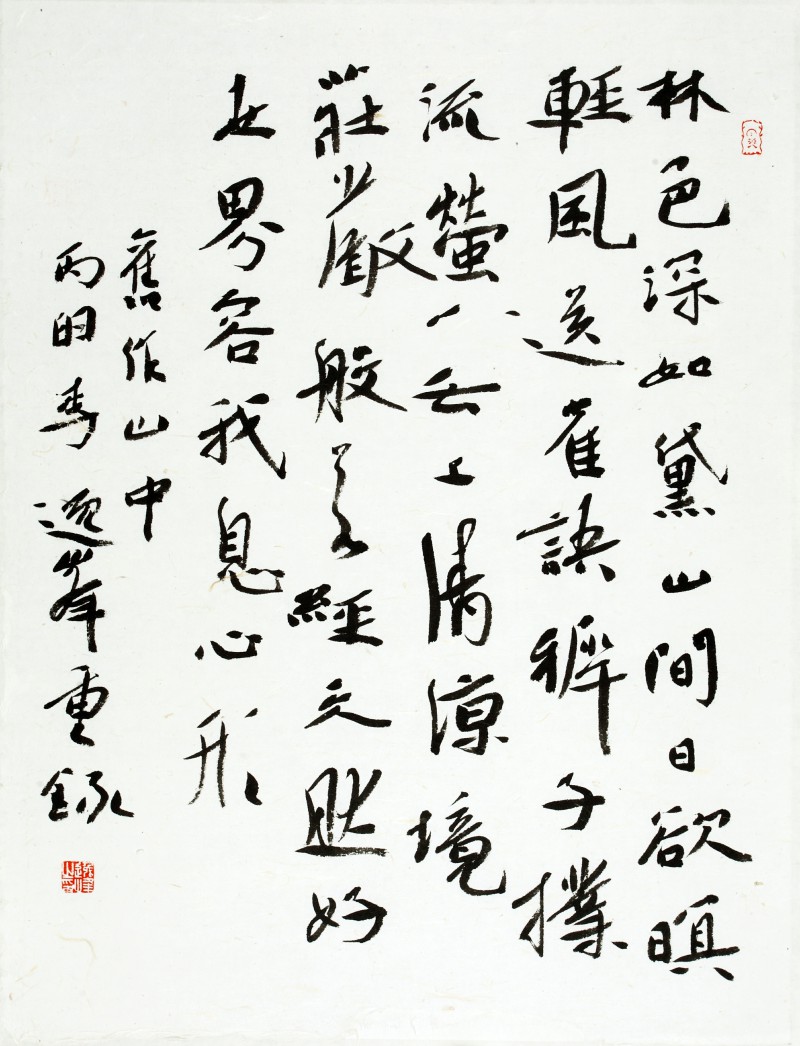 林色深如黛山間日欲暝
輕風送雀語稺子撲
流螢無上清涼境
莊嚴般若經天然好
世界容我息心形
舊作山中
丙申春逸峯重錄